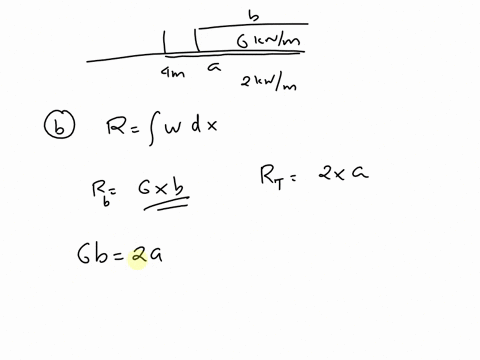 b
6 kN/m
4m a
2 kN/m
b R = ∫ w dx
R_b = 6 x b R_T = 2 x a
6b = 2a